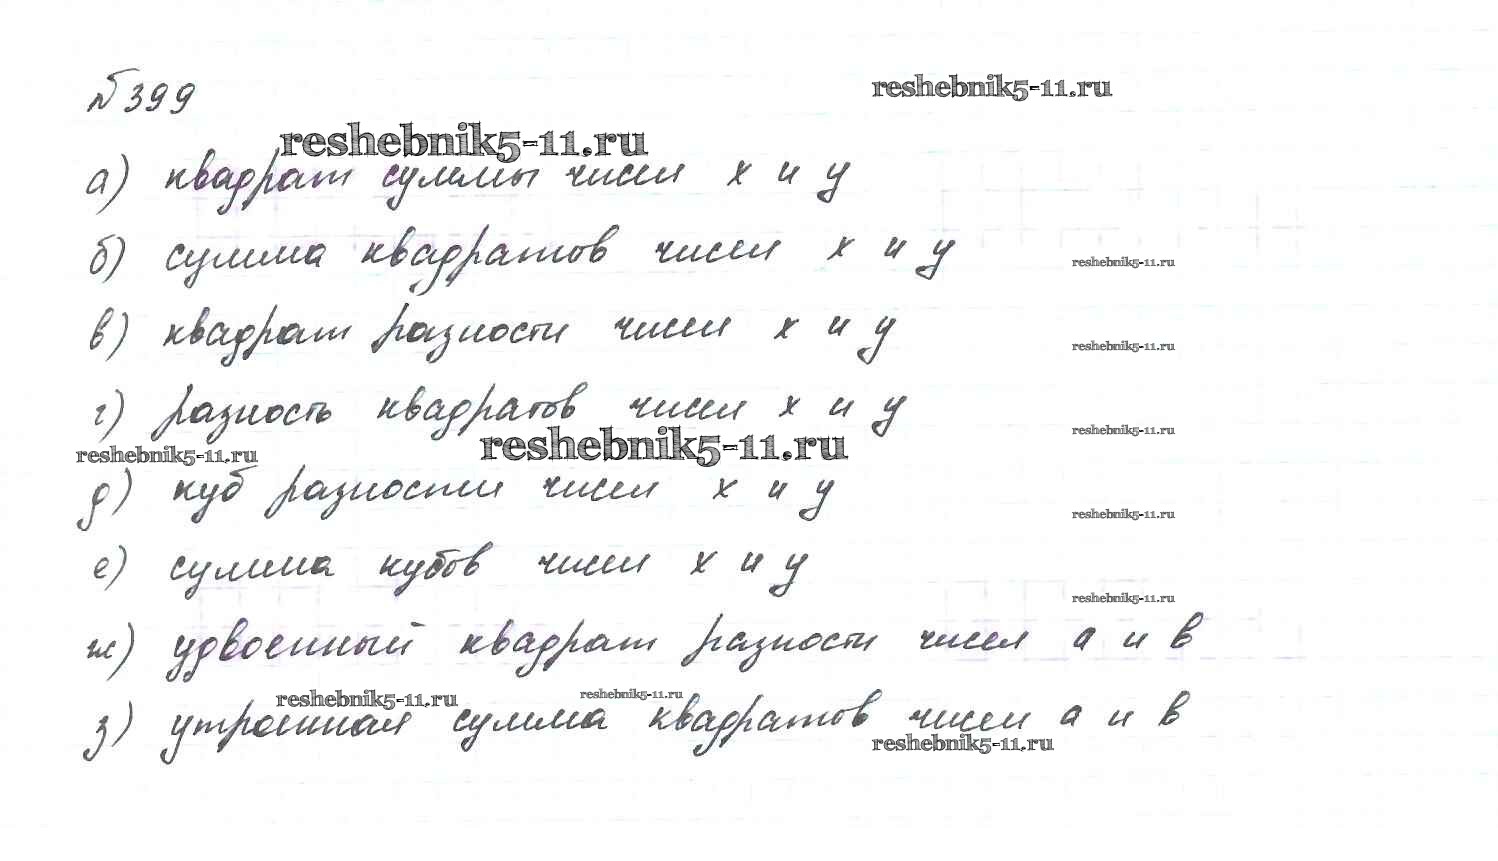 №399 reshebnik5-11.ru
reshebnik5-11.ru
а) квадрат суммы чисел x и y
б) сумма квадратов чисел x и y
reshebnik5-11.ru
в) квадрат разности чисел x и y
reshebnik5-11.ru
г) разность квадратов чисел x и y
reshebnik5-11.ru
reshebnik5-11.ru reshebnik5-11.ru
д) куб разности чисел x и y
reshebnik5-11.ru
е) сумма кубов чисел x и y
reshebnik5-11.ru
ж) удвоенный квадрат разности чисел a и b
reshebnik5-11.ru reshebnik5-11.ru
з) утроенная сумма квадратов чисел a и b
reshebnik5-11.ru